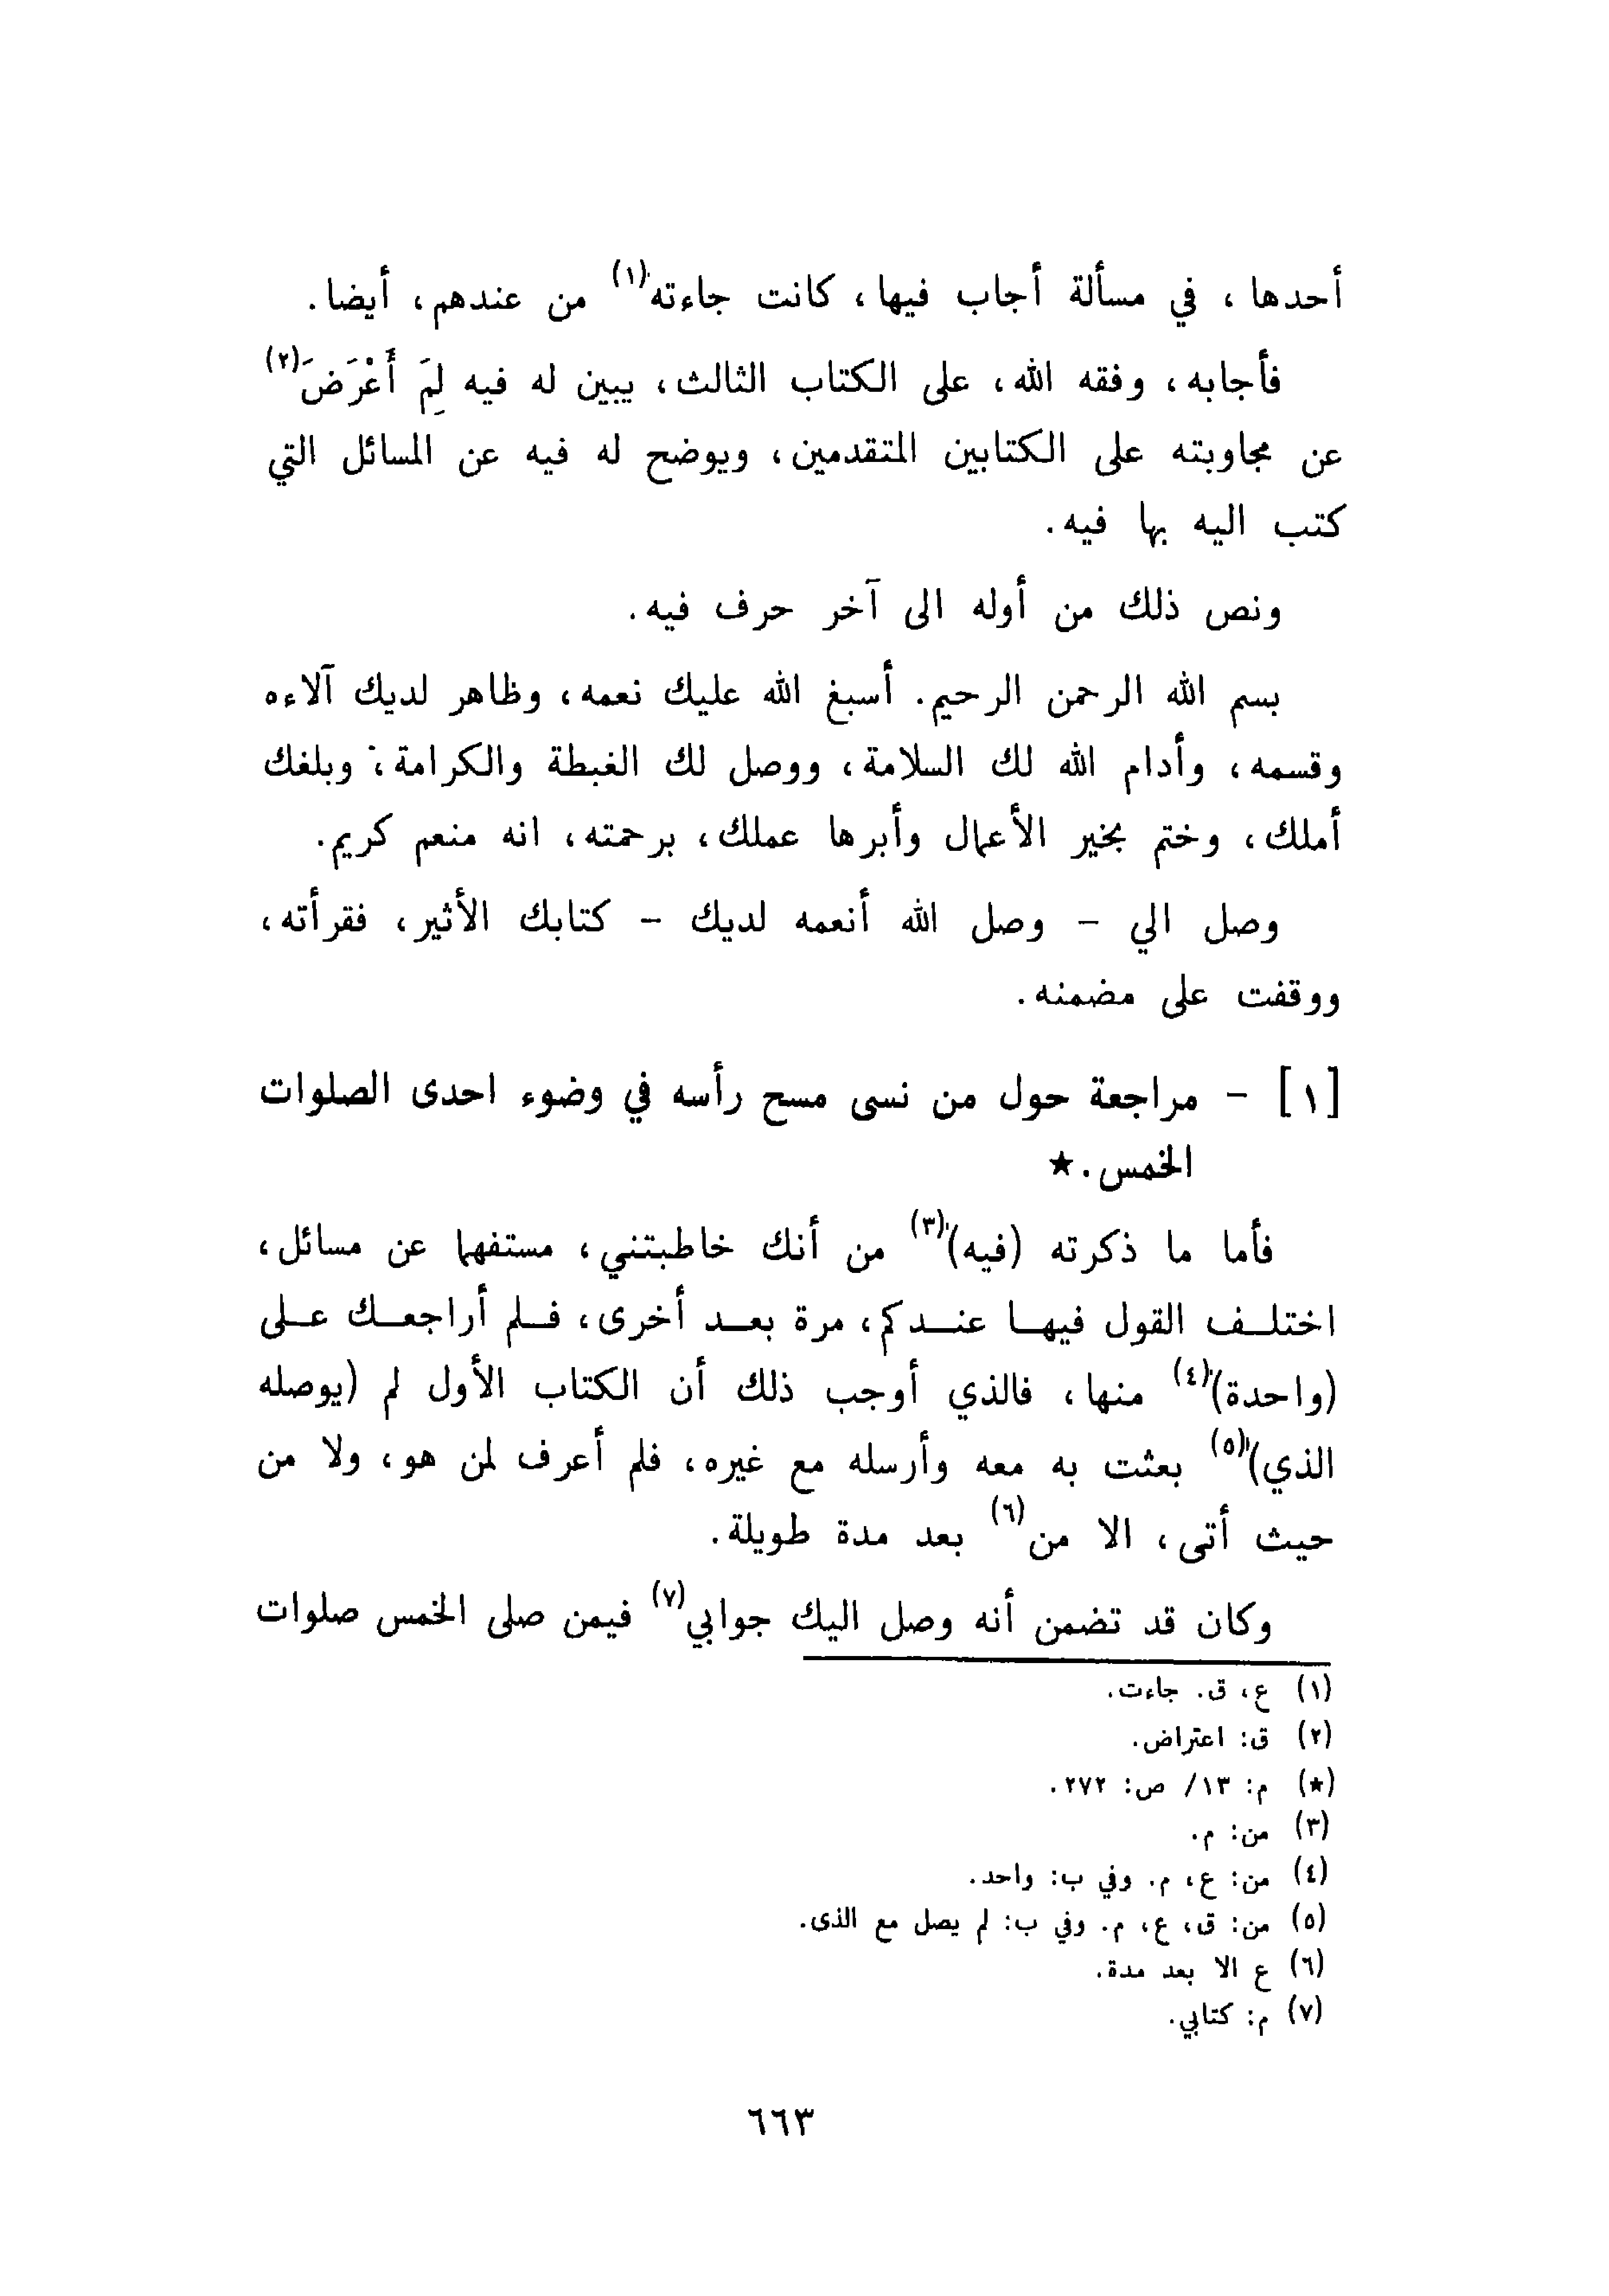 أحدها، في مسألة أجاب فيها، كانت جاءته(١) من عندهم، أيضا.
فأجابه، وفقه الله، على الكتاب الثالث، يبين له فيه لِمَ أَعْرَضَ(٢)
عن مجاوبته على الكتابين المتقدمين، ويوضح له فيه عن المسائل التي
كتب اليه بها فيه.
ونص ذلك من أوله الى آخر حرف فيه.
بسم الله الرحمن الرحيم. أسبغ الله عليك نعمه، وظاهر لديك آلاءه
وقسمه، وأدام الله لك السلامة، ووصل لك الغبطة والكرامة، وبلغك
أملك، وختم بخير الأعمال وأبرها عملك، برحمته، انه منعم كريم.
وصل الي - وصل الله أنعمه لديك - كتابك الأثير، فقرأته،
ووقفت على مضمنه.
[١] - مراجعة حول من نسى مسح رأسه في وضوء احدى الصلوات
الخمس.★
فأما ما ذكرته (فيه)(٣) من أنك خاطبتني، مستفهما عن مسائل،
اختلف القول فيها عندكم، مرة بعد أخرى، فلم أراجعك على
(واحدة)(٤) منها، فالذي أوجب ذلك أن الكتاب الأول لم (يوصله
الذي)(٥) بعثت به معه وأرسله مع غيره، فلم أعرف لمن هو، ولا من
حيث أتى، الا من(٦) بعد مدة طويلة.
وكان قد تضمن أنه وصل اليك جوابي(٧) فيمن صلى الخمس صلوات
(١) ع، ق. جاءت.
(٢) ق: اعتراض.
(★) م: ١٣/ ص: ٢٧٢.
(٣) من: م.
(٤) من: ع، م. وفي ب: واحد.
(٥) من: ق، ع، م. وفي ب: لم يصل مع الذى.
(٦) ع الا بعد مدة.
(٧) م: كتابي.
٦٦٣